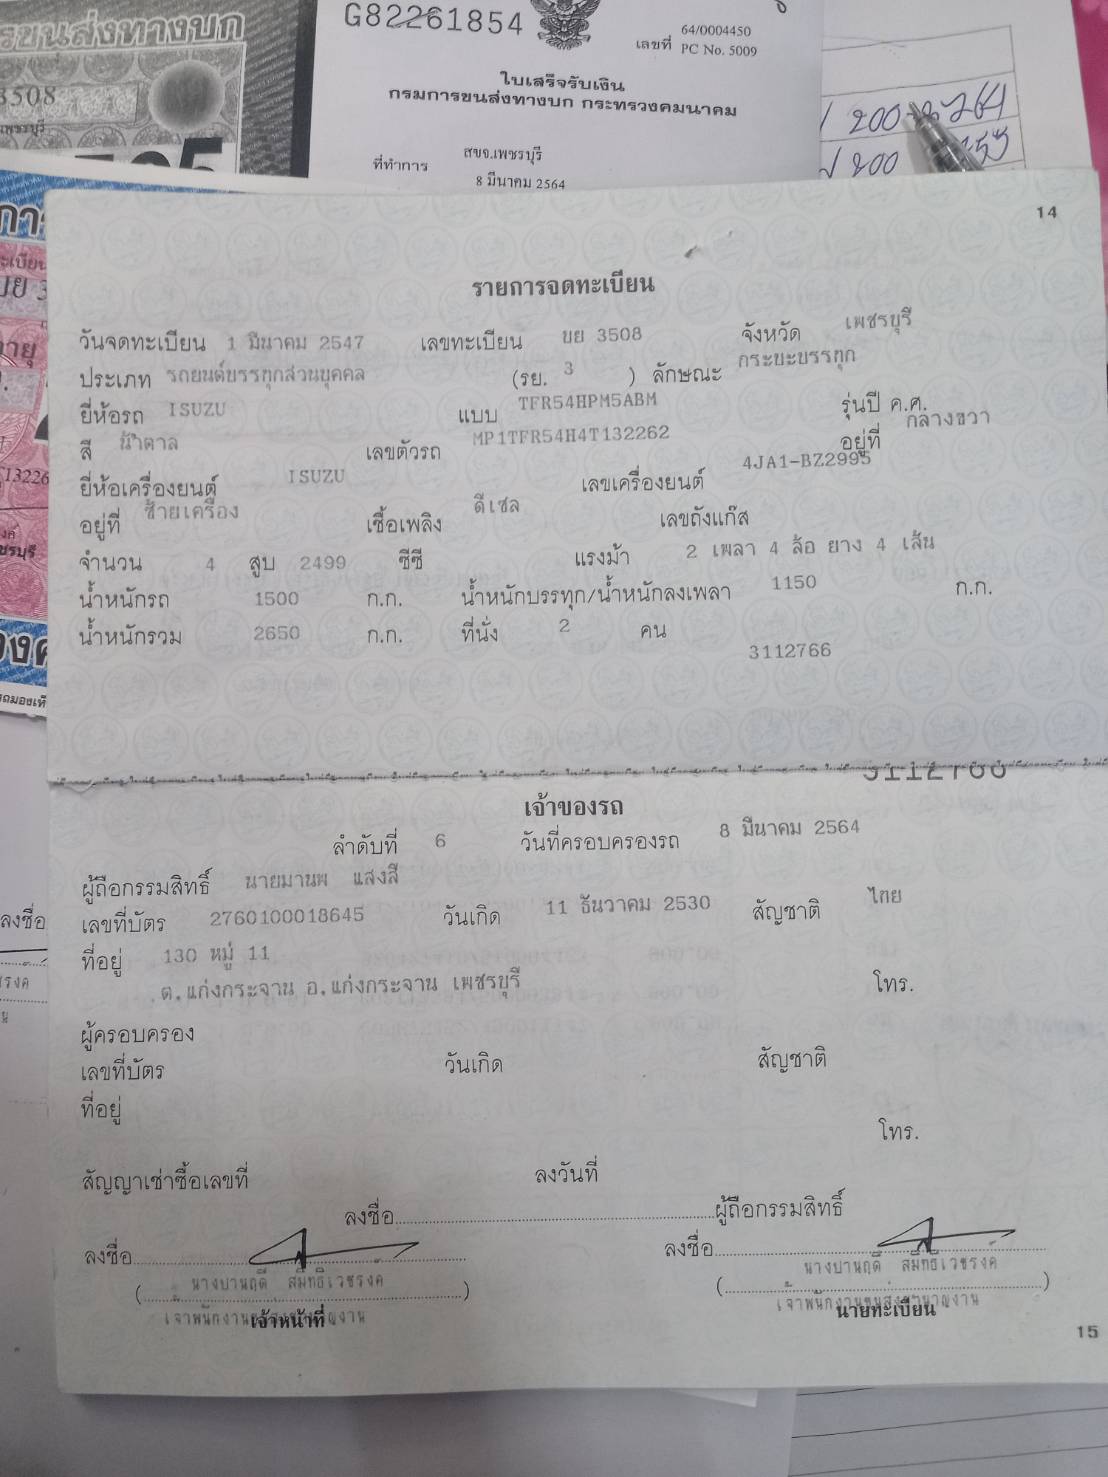 รขนส่งทางบก
3508
เพชรบุรี
G82261854
64/0004450
เลขที่ PC No. 5009
ใบเสร็จรับเงิน
กรมการขนส่งทางบก กระทรวงคมนาคม
ที่ทำการ สขจ.เพชรบุรี
8 มีนาคม 2564
200
200
14
รายการจดทะเบียน
วันจดทะเบียน 1 มีนาคม 2547 เลขทะเบียน บย 3508 จังหวัด เพชรบุรี
ประเภท รถยนต์บรรทุกส่วนบุคคล (รย. 3 ) ลักษณะ กระบะบรรทุก
ยี่ห้อรถ ISUZU แบบ TFR54HPM5ABM รุ่นปี ค.ศ.
สี น้ำตาล เลขตัวรถ MP1TFR54H4T132262 อยู่ที่ กลางขวา
ยี่ห้อเครื่องยนต์ ISUZU เลขเครื่องยนต์ 4JA1-BZ2995
อยู่ที่ ซ้ายเครื่อง เชื้อเพลิง ดีเซล เลขถังแก๊ส
จำนวน 4 สูบ 2499 ซีซี แรงม้า 2 เพลา 4 ล้อ ยาง 4 เส้น
น้ำหนักรถ 1500 ก.ก. น้ำหนักบรรทุก/น้ำหนักลงเพลา 1150 ก.ก.
น้ำหนักรวม 2650 ก.ก. ที่นั่ง 2 คน
3112766
3112766
เจ้าของรถ
ลำดับที่ 6 วันที่ครอบครองรถ 8 มีนาคม 2564
ผู้ถือกรรมสิทธิ์ นายมานพ แสงสี
เลขที่บัตร 2760100018645 วันเกิด 11 ธันวาคม 2530 สัญชาติ ไทย
ที่อยู่ 130 หมู่ 11
ต.แก่งกระจาน อ.แก่งกระจาน เพชรบุรี โทร.
ผู้ครอบครอง
เลขที่บัตร วันเกิด สัญชาติ
ที่อยู่
โทร.
สัญญาเช่าซื้อเลขที่ ลงวันที่
ลงชื่อ ผู้ถือกรรมสิทธิ์
ลงชื่อ ลงชื่อ
(นางปานฤดี สมิทธิเวชรงค์) (นางปานฤดี สมิทธิเวชรงค์)
เจ้าพนักงานขนส่งชำนาญงาน เจ้าพนักงานขนส่งชำนาญงาน
เจ้าหน้าที่ นายทะเบียน
15
ลงชื่อ